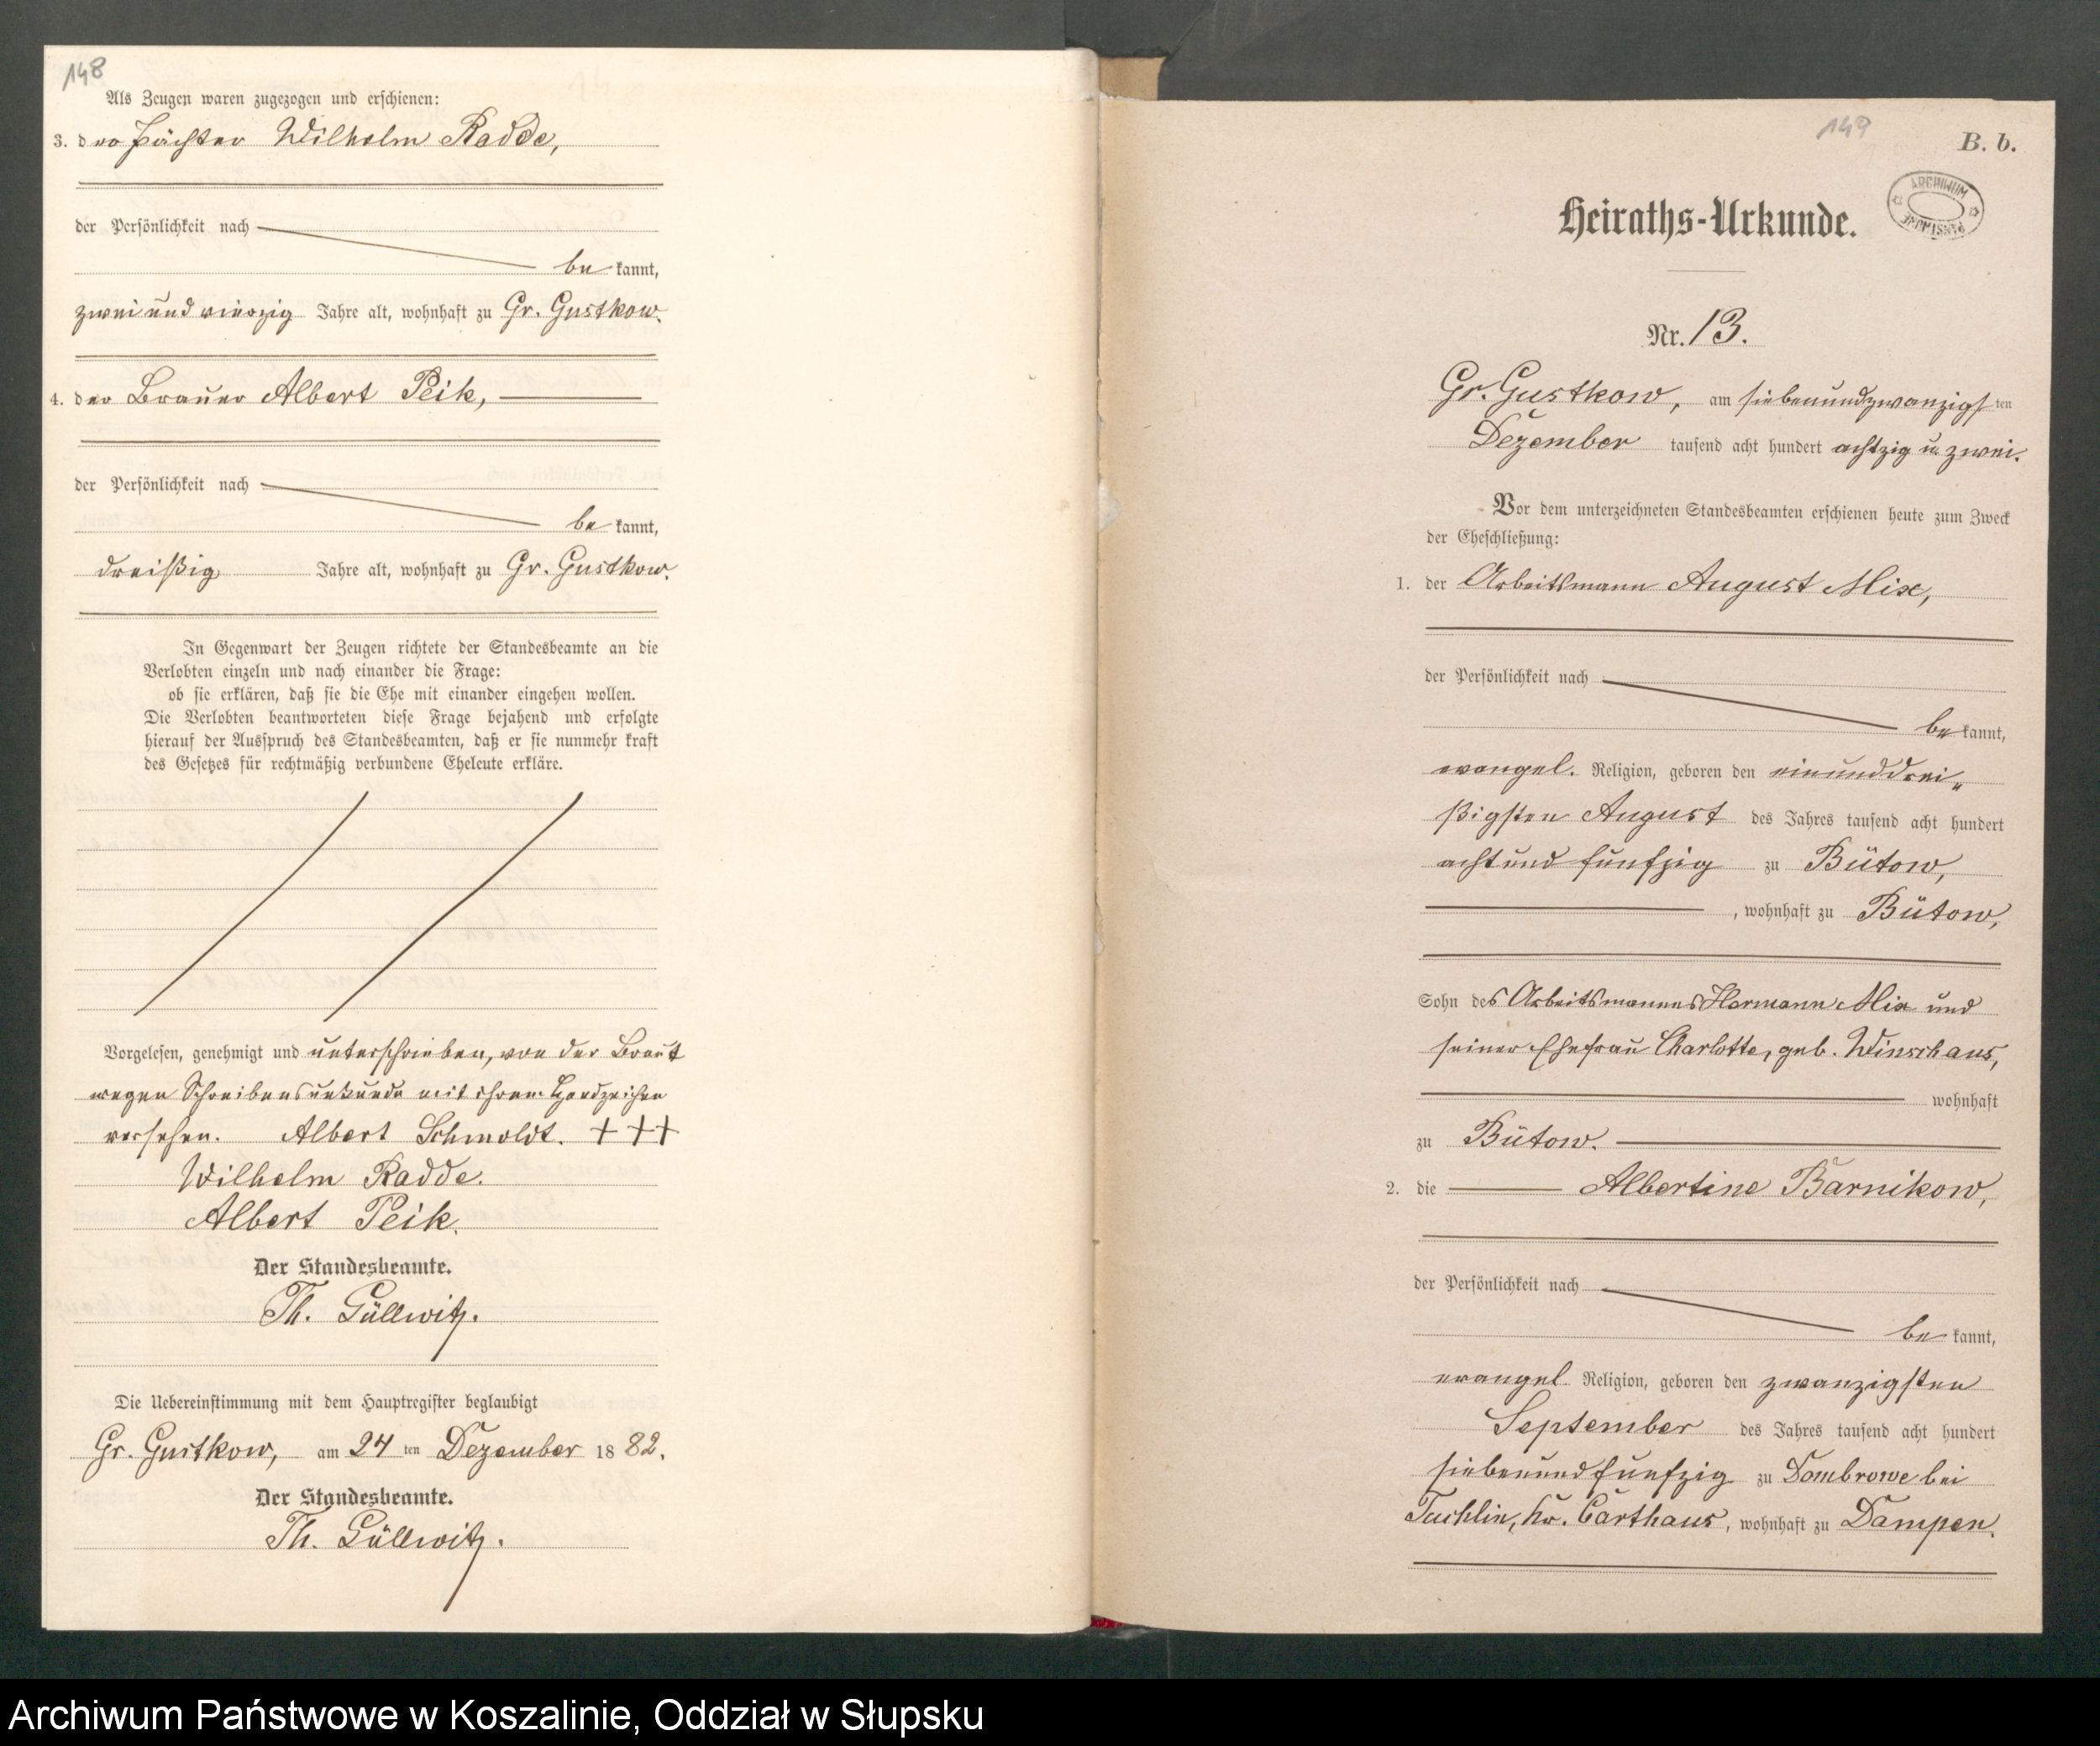 148
Als Zeugen waren zugezogen und erschienen:
3. der Pächter Wilhelm Radde,
der Persönlichkeit nach
be kannt,
zwei und vierzig Jahre alt, wohnhaft zu Gr. Gustkow.
4. der Brauer Albert Peik,
der Persönlichkeit nach
be kannt,
dreißig Jahre alt, wohnhaft zu Gr. Gustkow.
In Gegenwart der Zeugen richtete der Standesbeamte an die
Verlobten einzeln und nach einander die Frage:
ob sie erklären, daß sie die Ehe mit einander eingehen wollen.
Die Verlobten beantworteten diese Frage bejahend und erfolgte
hierauf der Ausspruch des Standesbeamten, daß er sie nunmehr kraft
des Gesetzes für rechtmäßig verbundene Eheleute erkläre.
Vorgelesen, genehmigt und unterschrieben, von der Braut
wegen Schreibensunkunde mit ihrem Handzeichen
versehen. Albert Schmoldt. +++
Wilhelm Radde.
Albert Peik.
Der Standesbeamte.
Th. Güllwitz.
Die Uebereinstimmung mit dem Hauptregister beglaubigt
Gr. Gustkow, am 24 ten Dezember 18 82.
Der Standesbeamte.
Th. Güllwitz.
149
B. b.
ARCHIWUM
PAŃSTWOWE
Heiraths-Urkunde.
Nr. 13.
Gr. Gustkow, am siebenundzwanzigs ten
Dezember tausend acht hundert achtzig u. zwei.
Vor dem unterzeichneten Standesbeamten erschienen heute zum Zweck
der Eheschließung:
1. der Arbeitsmann August Mix,
der Persönlichkeit nach
be kannt,
evangel. Religion, geboren den einunddrei„
ßigsten August des Jahres tausend acht hundert
achtund fünfzig zu Bütow,
, wohnhaft zu Bütow,
Sohn des Arbeitsmannes Hermann Mix und
seiner Ehefrau Charlotte, geb. Winschaus,
wohnhaft
zu Bütow.
2. die Albertine Barnikow,
der Persönlichkeit nach
be kannt,
evangel Religion, geboren den zwanzigsten
September des Jahres tausend acht hundert
siebenundfünfzig zu Dombrowe bei
Tuchlin, Kr. Carthaus, wohnhaft zu Dampen.
Archiwum Państwowe w Koszalinie, Oddział w Słupsku